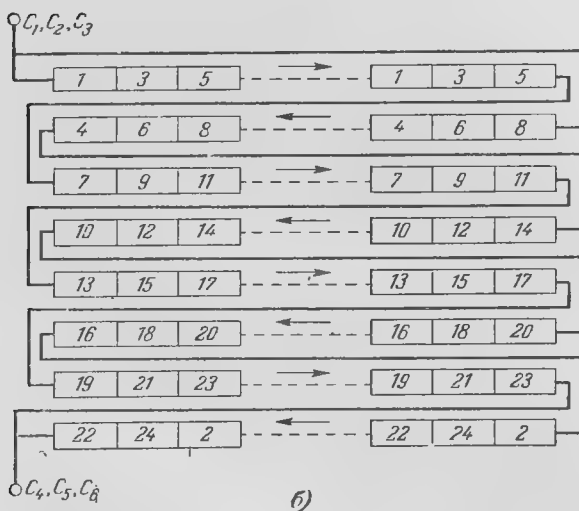 C₁, C₂, C₃
1 3 5 1 3 5
4 6 8 4 6 8
7 9 11 7 9 11
10 12 14 10 12 14
13 15 17 13 15 17
16 18 20 16 18 20
19 21 23 19 21 23
22 24 2 22 24 2
C₄, C₅, C₆
б)